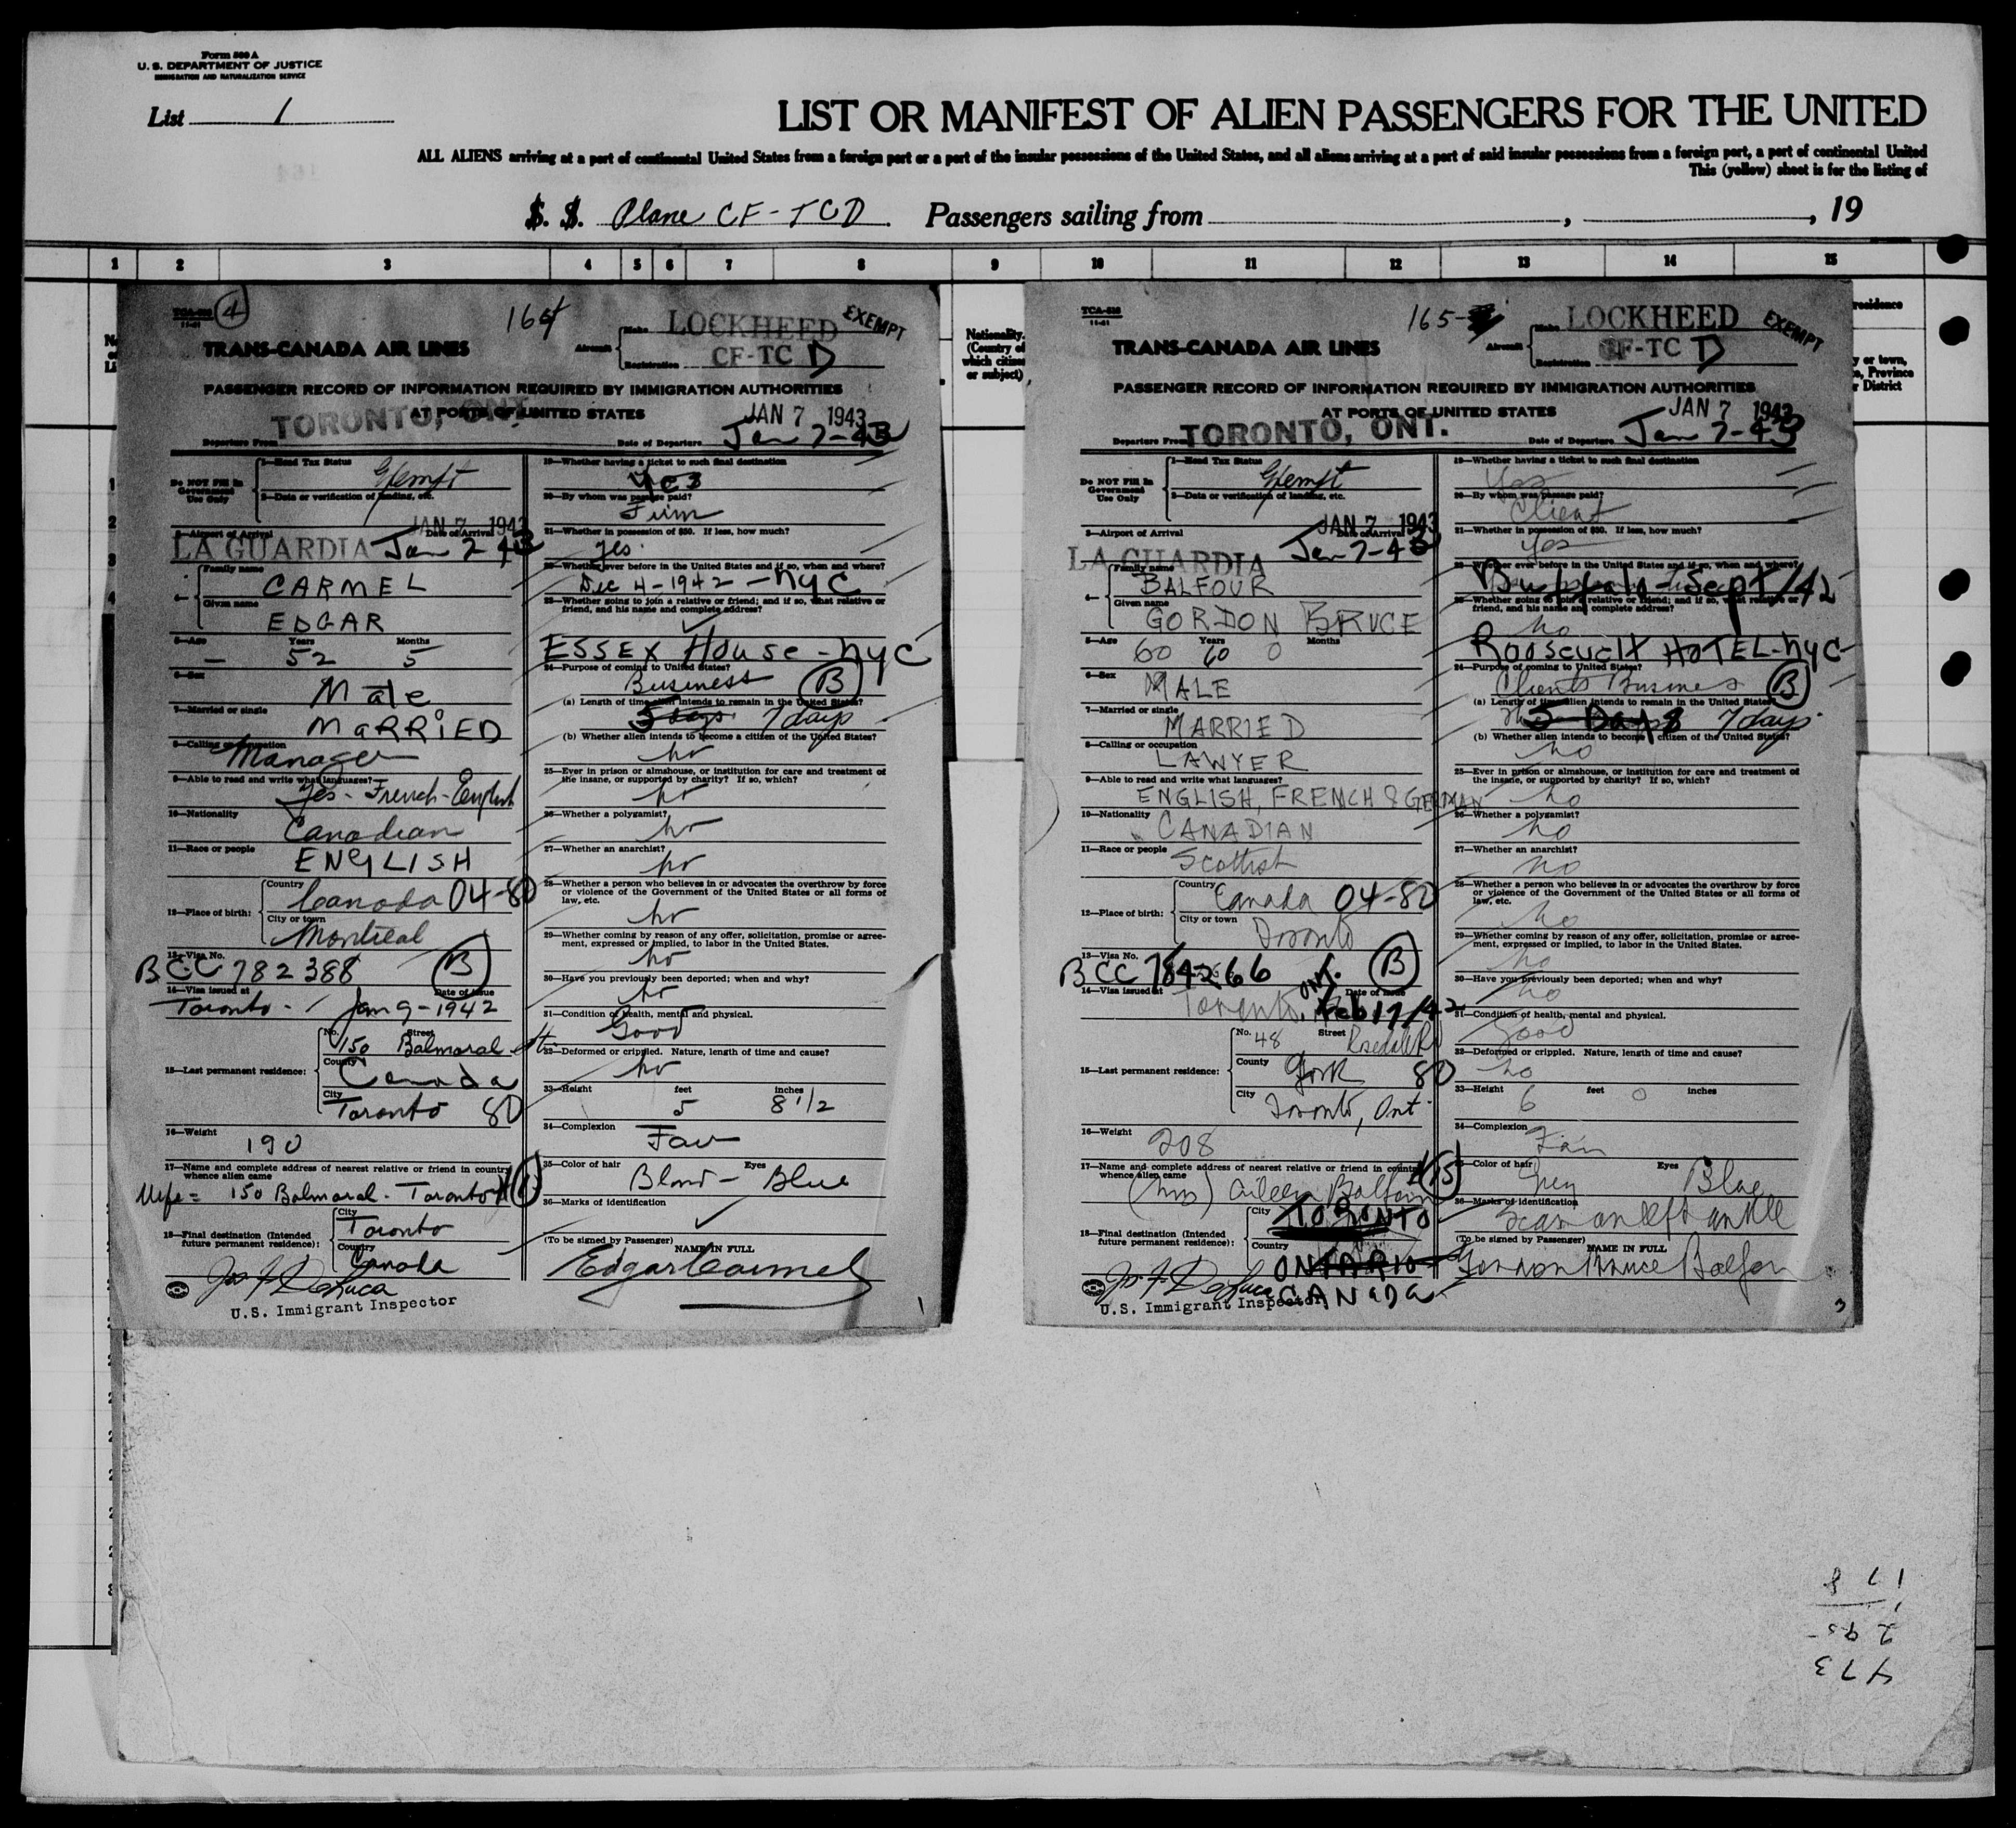 Form 500 A
U. S. DEPARTMENT OF JUSTICE
IMMIGRATION AND NATURALIZATION SERVICE
List 1
LIST OR MANIFEST OF ALIEN PASSENGERS FOR THE UNITED
ALL ALIENS arriving at a port of continental United States from a foreign port or a port of the insular possessions of the United States, and all aliens arriving at a port of said insular possessions from a foreign port, a port of continental United
This (yellow) sheet is for the listing of
S. S. Plane CF-TCD Passengers sailing from , , 19
1 2 3 4 5 6 7 8 9 10 11 12 13 14 15
Nationality.
(Country of
which citizen
or subject)
residence
y or town,
Province
District
4
164
LOCKHEED
EXEMPT
Aircraft Make
Registration CF-TC D
TRANS-CANADA AIR LINES
PASSENGER RECORD OF INFORMATION REQUIRED BY IMMIGRATION AUTHORITIES
AT PORTS OF UNITED STATES
TORONTO, ONT.
JAN 7 1943
Departure From Date of Departure Jan 7-43
Do NOT Fill In
Government
Use Only
1—Head Tax Status Exempt
2—Data or verification of landing, etc.
3—Airport of Arrival Date of Arrival
JAN 7 1943
LA GUARDIA Jan 7-43
4—
Family name
CARMEL
Given name
EDGAR
5—Age Years Months
52 5
6—Sex
Male
7—Married or single
MARRIED
8—Calling or occupation
Manager
9—Able to read and write what languages?
Yes - French - English
10—Nationality
Canadian
11—Race or people
ENGLISH
12—Place of birth:
Country
Canada 04-80
City or town
Montreal
13—Visa No.
BCC 782388 B
14—Visa issued at Date of issue
Toronto - Jan 9-1942
15—Last permanent residence:
No. Street
150 Balmoral
County
Canada
City
Toronto 80
16—Weight
190
17—Name and complete address of nearest relative or friend in country
whence alien came
Wife = 150 Balmoral - Toronto
18—Final destination (Intended
future permanent residence):
City
Toronto
Country
Canada
Jos. F. DeLuca
U.S. Immigrant Inspector
19—Whether having a ticket to such final destination
Yes
20—By whom was passage paid?
Firm
21—Whether in possession of $50. If less, how much?
Yes
22—Whether ever before in the United States and if so, when and where?
Dec 4-1942 - NYC
23—Whether going to join a relative or friend; and if so, what relative or
friend, and his name and complete address?
ESSEX House - NYC
24—Purpose of coming to United States?
Business B
(a) Length of time alien intends to remain in the United States?
5 days 7 days
(b) Whether alien intends to become a citizen of the United States?
no
25—Ever in prison or almshouse, or institution for care and treatment of
the insane, or supported by charity? If so, which?
no
26—Whether a polygamist?
no
27—Whether an anarchist?
no
28—Whether a person who believes in or advocates the overthrow by force
or violence of the Government of the United States or all forms of
law, etc.
no
29—Whether coming by reason of any offer, solicitation, promise or agree-
ment, expressed or implied, to labor in the United States.
no
30—Have you previously been deported; when and why?
no
31—Condition of health, mental and physical.
Good
32—Deformed or crippled. Nature, length of time and cause?
no
33—Height feet inches
5 8 1/2
34—Complexion
Fair
35—Color of hair Eyes
Blond - Blue
36—Marks of identification
(To be signed by Passenger)
NAME IN FULL
Edgar Carmel
1
TCA-538
11-41
165-
LOCKHEED
EXEMPT
Aircraft Make
Registration CF-TC D
TRANS-CANADA AIR LINES
PASSENGER RECORD OF INFORMATION REQUIRED BY IMMIGRATION AUTHORITIES
AT PORTS OF UNITED STATES
JAN 7 1943
Departure From TORONTO, ONT. Date of Departure Jan 7-43
Do NOT Fill In
Government
Use Only
1—Head Tax Status Exempt
2—Data or verification of landing, etc.
3—Airport of Arrival Date of Arrival
JAN 7 1943
LA GUARDIA Jan 7-43
4—
Family name
BALFOUR
Given name
GORDON BRUCE
5—Age Years Months
60 60 0
6—Sex
MALE
7—Married or single
MARRIED
8—Calling or occupation
LAWYER
9—Able to read and write what languages?
ENGLISH, FRENCH & GERMAN
10—Nationality
CANADIAN
11—Race or people
Scottish
12—Place of birth:
Country
Canada 04-80
City or town
Toronto
13—Visa No.
BCC 784266 B
14—Visa issued at Date of issue
Toronto, Ont. Feb 17/42
15—Last permanent residence:
No. Street
48 Rosedale Rd
County
York 80
City
Toronto, Ont.
16—Weight
208
17—Name and complete address of nearest relative or friend in country
whence alien came
(Mrs) Aileen Balfour
18—Final destination (Intended
future permanent residence):
City
TORONTO
Country
ONTARIO
CANADA
Jos. F. DeLuca
U.S. Immigrant Inspector
19—Whether having a ticket to such final destination
Yes
20—By whom was passage paid?
Client
21—Whether in possession of $50. If less, how much?
Yes
22—Whether ever before in the United States and if so, when and where?
Buffalo - Sept/42
23—Whether going to join a relative or friend; and if so, what relative or
friend, and his name and complete address?
no
Roosevelt HOTEL - NYC
24—Purpose of coming to United States?
Clients Business B
(a) Length of time alien intends to remain in the United States?
5 Days 7 days
(b) Whether alien intends to become a citizen of the United States?
no
25—Ever in prison or almshouse, or institution for care and treatment of
the insane, or supported by charity? If so, which?
no
26—Whether a polygamist?
no
27—Whether an anarchist?
no
28—Whether a person who believes in or advocates the overthrow by force
or violence of the Government of the United States or all forms of
law, etc.
no
29—Whether coming by reason of any offer, solicitation, promise or agree-
ment, expressed or implied, to labor in the United States.
no
30—Have you previously been deported; when and why?
no
31—Condition of health, mental and physical.
Good
32—Deformed or crippled. Nature, length of time and cause?
no
33—Height feet inches
6 0
34—Complexion
Fair
35—Color of hair Eyes
Grey Blue
36—Marks of identification
Scar on left ankle
(To be signed by Passenger)
NAME IN FULL
Gordon Bruce Balfour
3
473
295
178